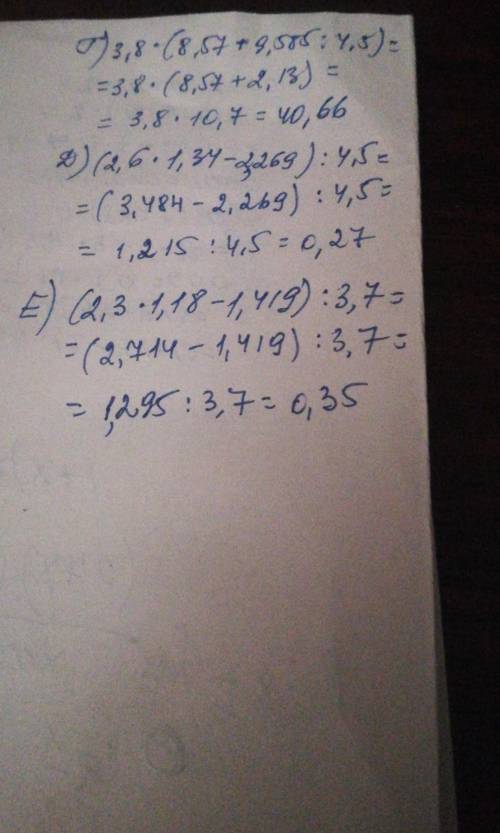 Г) 3,8 · (8,57 + 9,585 : 4,5) =
= 3,8 · (8,57 + 2,13) =
= 3,8 · 10,7 = 40,66
Д) (2,6 · 1,34 - 2,269) : 4,5 =
= (3,484 - 2,269) : 4,5 =
= 1,215 : 4,5 = 0,27
Е) (2,3 · 1,18 - 1,419) : 3,7 =
= (2,714 - 1,419) : 3,7 =
= 1,295 : 3,7 = 0,35